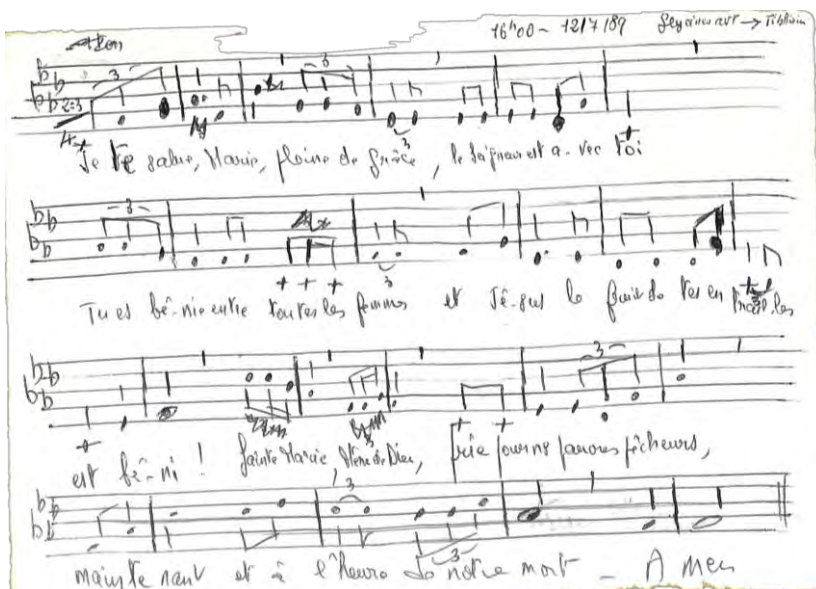 16h00 - 12/7/89
Je te salue, Marie, pleine de grâce, le Seigneur est a-vec toi
Tu es bé-nie entre toutes les femmes et Jé-sus le fruit de tes en
est bé-ni ! Sainte Marie, Mère de Dieu, prie pour ns pauvres pécheurs,
mainte nant et à l'heure de notre mort - A men